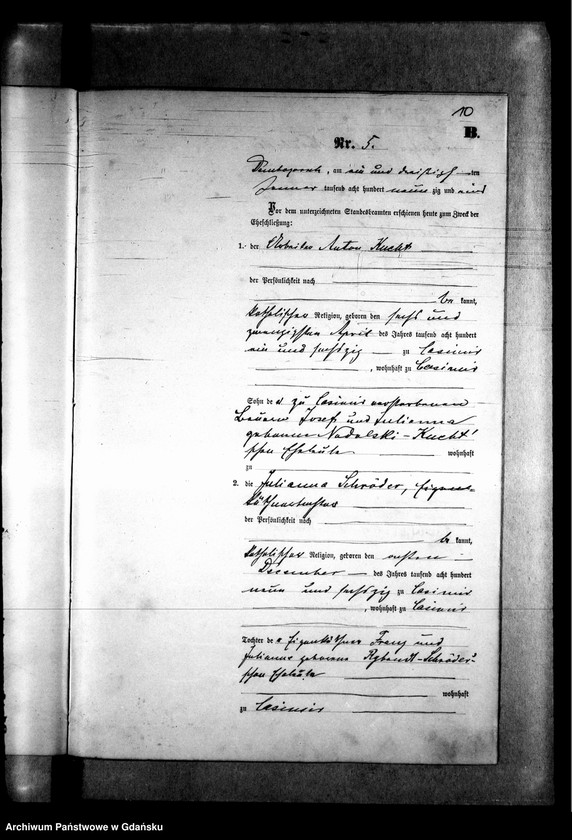 10
B.
Nr. 5.
am ein und dreißigsten
Januar tausend acht hundert neun zig und eins
Vor dem unterzeichneten Standesbeamten erschienen heute zum Zweck der
Eheschließung:
1. der Arbeiter Anton Kucht
der Persönlichkeit nach
be kannt,
katholischer Religion, geboren den sechs und
zwanzigsten April des Jahres tausend acht hundert
ein und sechszig zu Casimir
, wohnhaft zu Casimir
Sohn der zu Casimir verstorbenen
Bauern Josef und Julianna
geborene Nadolski-Kucht'
schen Eheleute wohnhaft
zu
2. die Julianna Schröder,
der Persönlichkeit nach
be kannt,
katholischer Religion, geboren den ersten
December des Jahres tausend acht hundert
neun und sechszig zu Casimir
, wohnhaft zu Casimir
Tochter der Eigenkäthner Franz und
Julianna geborene Schröder'
schen Eheleute
wohnhaft
zu Casimir
Archiwum Państwowe w Gdańsku